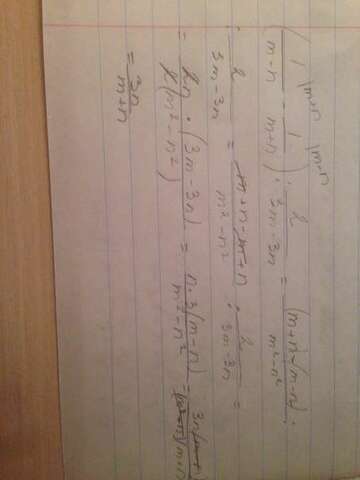 (1/(m-n) |m+n - 1/(m+n) |m-n) : 2/(3m-3n) = ((m+n)-(m-n))/(m²-n²) :
: 2/(3m-3n) = (m+n-m+n)/(m²-n²) : 2/(3m-3n) =
= 2n·(3m-3n)/(2(m²-n²)) = n·3(m-n)/(m²-n²) =
= 3n/(m+n)